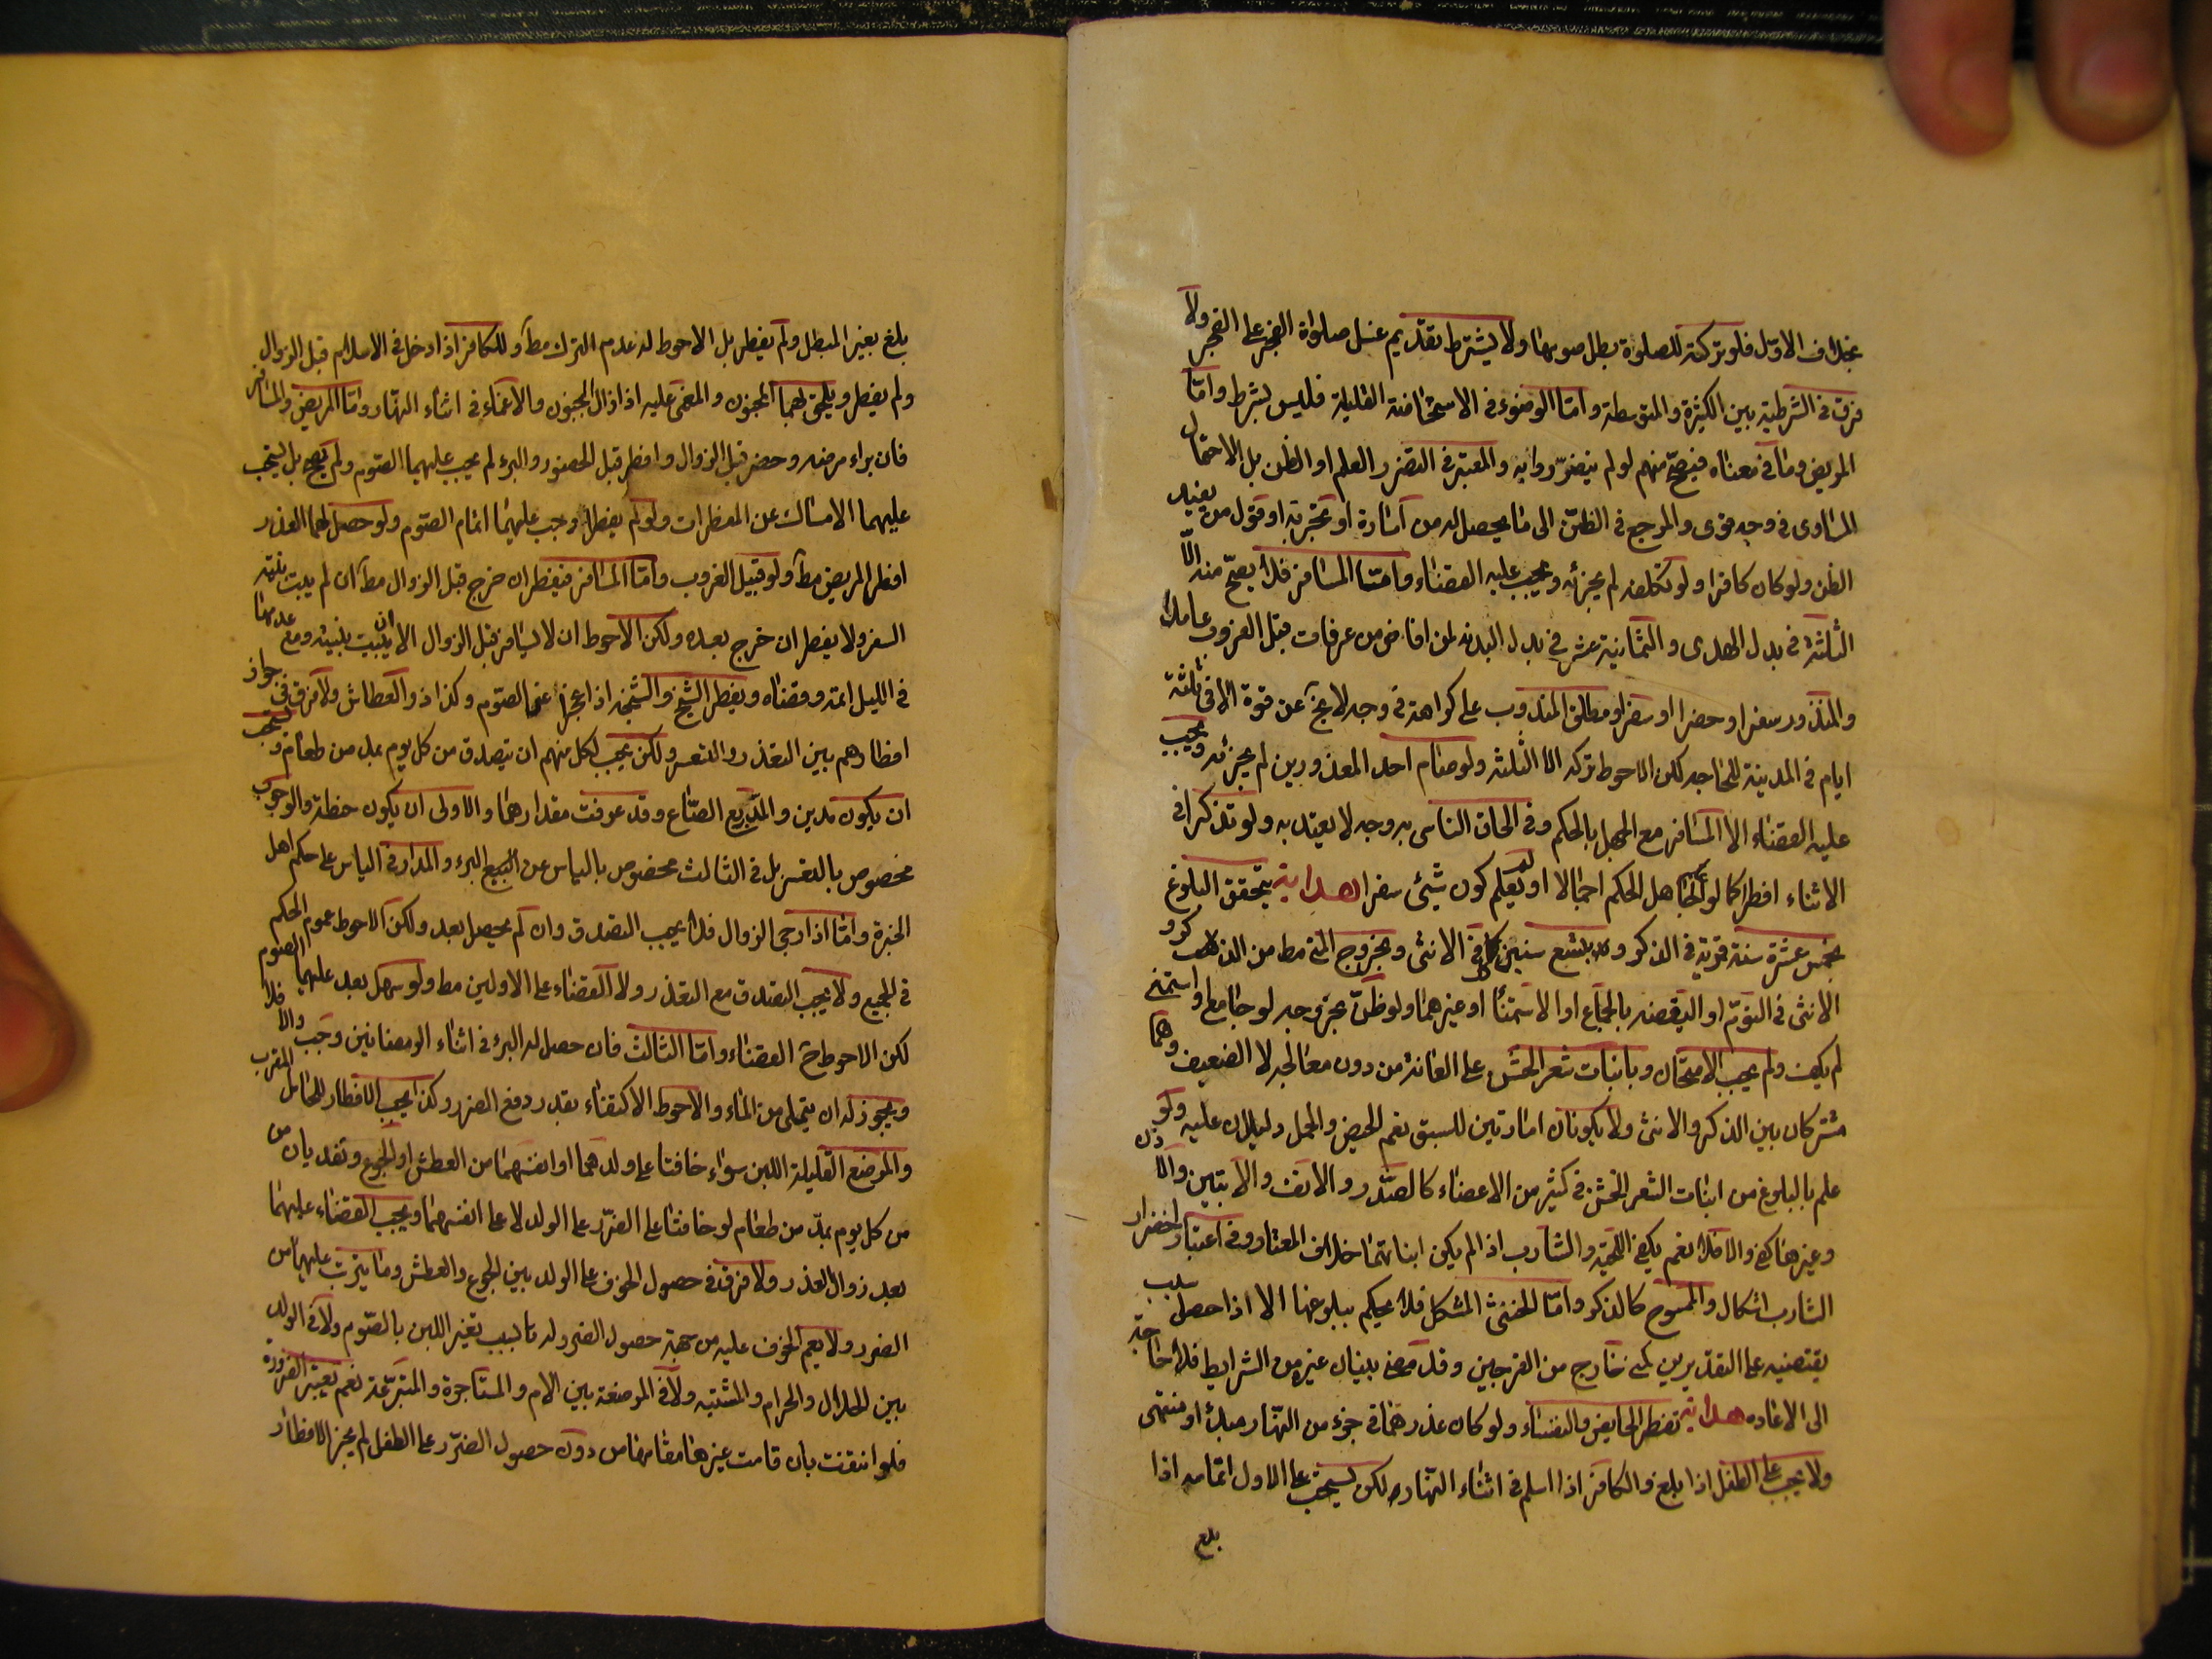 بخلاف الاول فلو تركته للصلوة بطل صومها ولا يشترط تقديم غسل صلوة الفجر على الفجر ولا
فرق في الشرطية بين الكثيرة والمتوسطة واما الوضوء في الاستحاضة القليلة فليس بشرط واما
المريض وما في معناه فيصح منهم لو لم يتضرروا به والمعتبر في التضرر العلم او الظن بل الاحتمال
المساوى في وجه قوى والمرجع في الظن الى ما يحصل له من امارة او تجربة او قول من يفيد
الظن ولو كان كافرا ولو تكلفه لم يجزئه ويجب عليه القضاء واما المسافر فلا يصح منه الا
الثلثة في بدل الهدى والثمانية عشر في بدل البدنه لمن افاض من عرفات قبل الغروب عامدا
والمنذور سفرا وحضرا او سفرا ومطلق المندوب على كراهة في وجه لا يخ عن قوة الا في ثلثة
ايام في المدينة للحاجه لكن الاحوط تركه الا الثلثة ولو صام احد المعذورين لم يجزئه ويجب
عليه القضاء الا المسافر مع الجهل بالحكم وفي الحاق الناسى به وجه لا يعتد به ولو تذكر في
الاثناء افطر كما لو الجاهل الحكم اجمالا او لم يعلم كون شيئ سفرا هداية يتحقق البلوغ
بخمس عشرة سنة قمرية في الذكور وبتسع سنين في الانثى وبخروج المني مط من الذكور و
الانثى في النوم او اليقضه بالجماع او الاستمناء او غيرهما ولو ظن بخروجه لو جامع او استمنى
لم يكف ولم يجب الامتحان وبانبات شعر الخشن على العانة من دون معالجه لا الضعيف وهما
مشتركان بين الذكر والانثى ولا يكونان امارتين للسبق نعم الحيض والحمل دليلان عليه ولو
علم بالبلوغ من انبات الشعر الخشن في كثير من الاعضاء كالصدر والانف والابتين والاذن
وغيرها كفى والا فلا نعم يكفي اللحية والشارب اذا لم يكن انباتهما خلاف المعتاد وفي اعتبار اخضرار
الشارب اشكال والممسوح كالذكر واما الخنثى المشكل فلا يحكم ببلوغها الا اذا حصل سبب
يقتضيه على التقديرين كمنى خارج من الفرجين وقد مضى بيان غيره من الشرايط فلا حاجة
الى الاعاده هداية تفطر الحايض والنفساء ولو كان عذرهما في جزء من النهار مبدا او منتهى
ولا يجب على الطفل اذا بلغ والكافر اذا اسلم في اثناء النهار لكن يستحب على الاول اتمامه اذا
بلغ
بلغ بغير المبطل ولم يفطر بل الاحوط له عدم الترك مط وللكافر اذا دخل في الاسلام قبل الزوال
ولم يفطر ويلحق بهما المجنون والمغمى عليه اذا زال الجنون والاغماء في اثناء النهار واما المريض والمسافر
فان براء مرضه وحضر قبل الزوال وافطر قبل الحضور والبرء لم يجب عليهما الصوم ولم يصح بل يستحب
عليهما الامساك عن المفطرات ولو لم يفطرا وجب عليهما اتمام الصوم ولو حصل لهما العذر
افطر المريض مط ولو قبيل الغروب واما المسافر فيفطر ان خرج قبل الزوال مط ان لم يبت بنية
السفر ولا يفطر ان خرج بعده ولكن الاحوط ان لا يسافر قبل الزوال الا ان يبيت بنيته ومع عدمها
في الليل اتمه وقضاه ويفطر الشيخ والشيخه اذا عجزا عن الصوم وكذا ذو العطاش ولا فرق في جواز
افطارهم بين التعذر والتعسر ولكن يجب لكل منهم ان يتصدق من كل يوم بمد من طعام ويستحب
ان يكون مدين والمد ربع الصاع وقد عرفت مقدارهما والاولى ان يكون حنطة والوجوب
مخصوص بالتعسر بل في الثالث مخصوص بالياس عن البرء والمدار في الياس على حكم اهل
الخبرة واما اذا رجى الزوال فلا يجب التصدق وان لم يحصل بعد ولكن الاحوط عموم الحكم
في الجميع ولا يجب التصدق مع التعذر ولا القضاء على الاولين مط ولو سهل بعد عليهما الصوم
لكن الاحوط ح القضاء واما الثالث فان حصل له البرء في اثناء الرمضانين وجب والا فلا
ويجوز له ان يتملى من الماء والاحوط الاكتفاء بقدر دفع الضرر وكذا يجب الافطار للحامل المقرب
والمرضع القليلة اللبن سواء خافتا على ولدهما او انفسهما من العطش او الجوع وتفديان من
من كل يوم بمد من طعام لو خافتا على الضرر على الولد لا على انفسهما ويجب القضاء عليهما
بعد زوال العذر ولا فرق في حصول الخوف على الولد بين الجوع والعطش وما يترتب عليهما من
الضرر ولا يعم الخوف عليه من جهة حصول الضرر له بسبب تغير اللبن بالصوم ولا في الولد
بين الحلال والحرام والمشتبه ولا في المرضعة بين الام والمستاجرة والمتبرعة نعم يعتبر الضرورة
فلو انتفت بان قامت غيرها مقامها من دون حصول الضرر على الطفل لم يجز الافطار